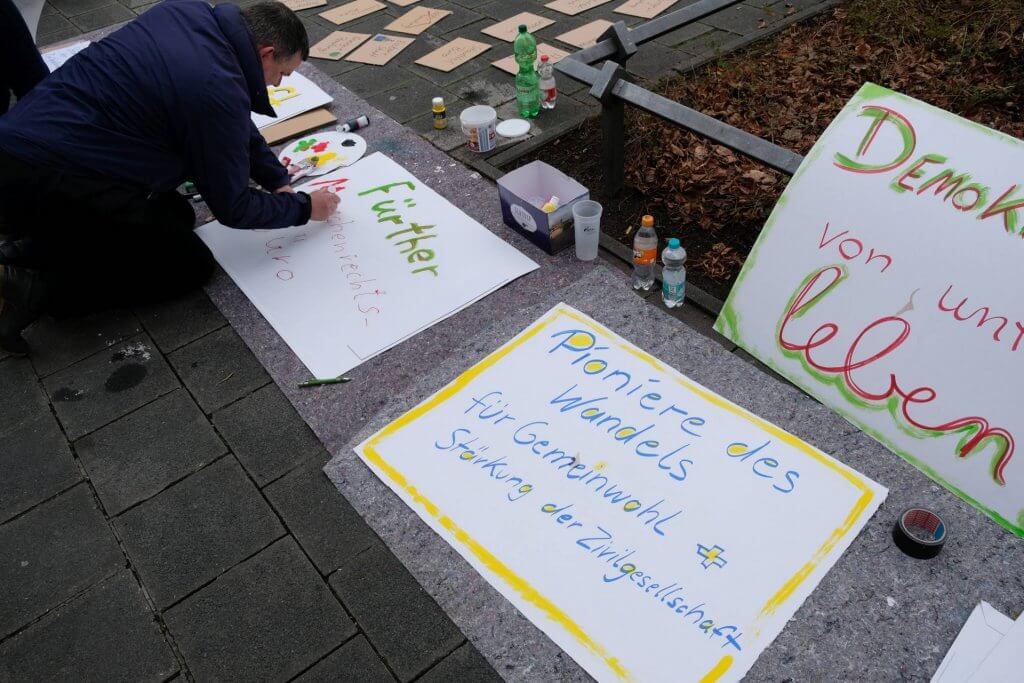 Fürther
henrechts-
üro
Pioniere des
Wandels
für Gemeinwohl +
Stärkung der Zivilgesellschaft
DEMOK
von unt
leben